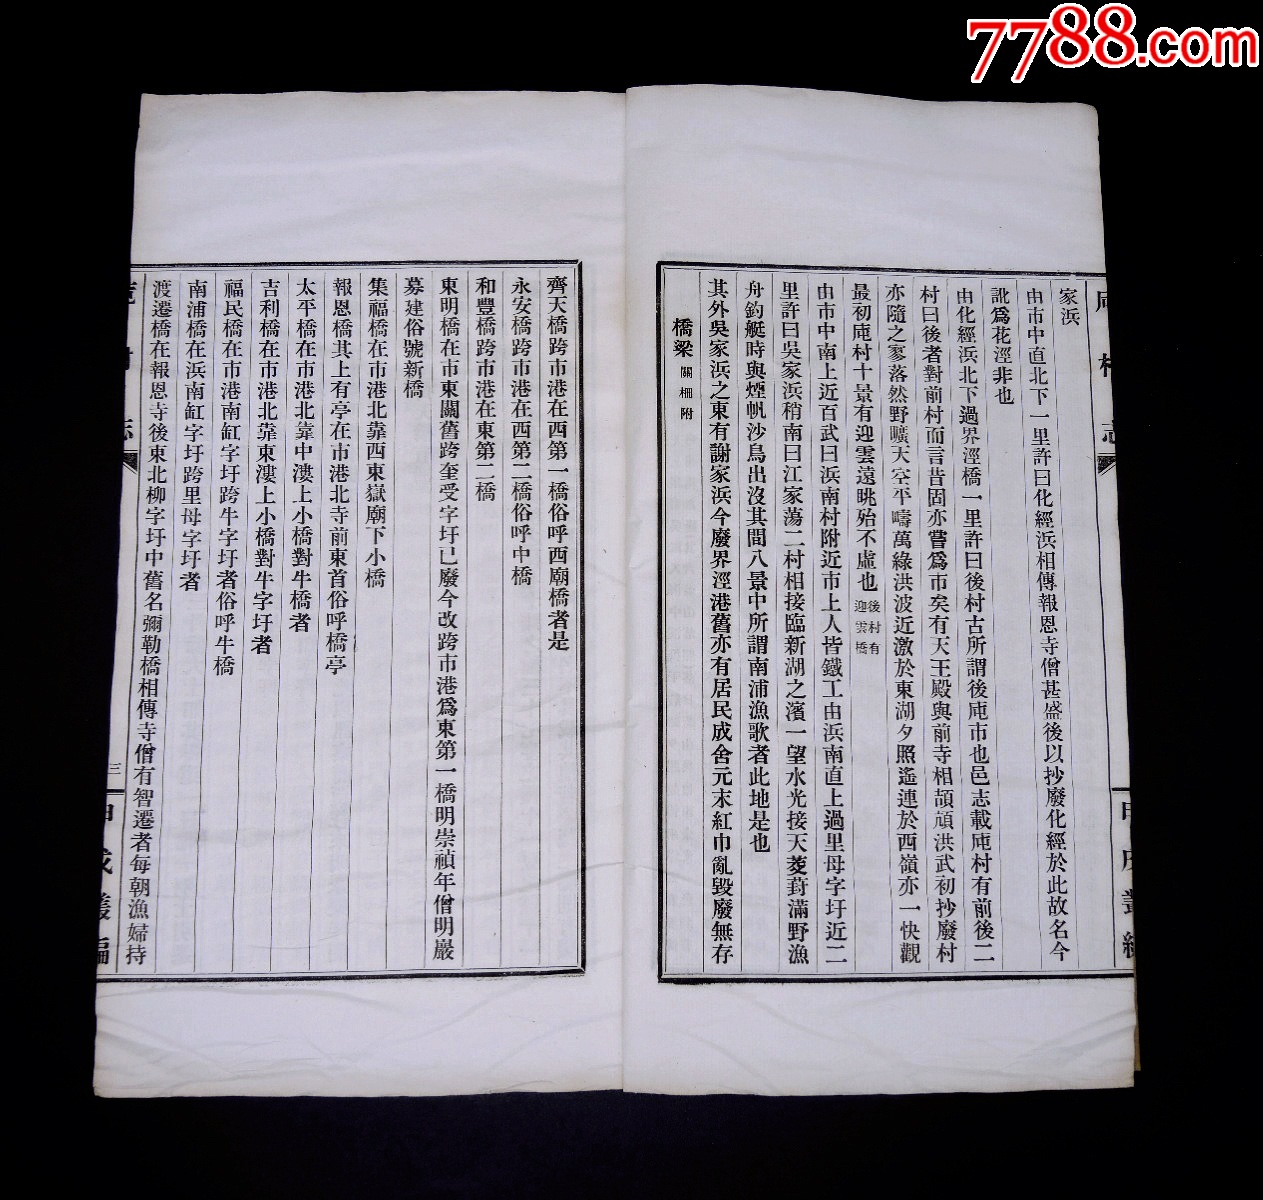 7788.com
村志
家浜
由市中直北下一里許曰化經浜相傳報恩寺僧甚盛後以抄廢化經於此故名今
訛爲花涇非也
由化經浜北下過界涇橋一里許曰後村古所謂後庉市也邑志載庉村有前後二
村曰後者對前村而言昔固亦嘗爲市矣有天王殿與前寺相頡頏洪武初抄廢村
亦隨之寥落然野曠天空平疇萬綠洪波近激於東湖夕照遙連於西嶺亦一快觀
最初庉村十景有迎雲遠眺殆不虛也後村有迎雲橋
由市中南上近百武曰浜南村附近市上人皆鐵工由浜南直上過里母字圩近二
里許曰吳家浜稍南曰江家蕩二村相接臨新湖之濱一望水光接天菱葑滿野漁
舟釣艇時與煙帆沙鳥出沒其間八景中所謂南浦漁歌者此地是也
其外吳家浜之東有謝家浜今廢界涇港舊亦有居民成舍元末紅巾亂毀廢無存
橋梁關柵附
齊天橋跨市港在西第一橋俗呼西廟橋者是
永安橋跨市港在西第二橋俗呼中橋
和豐橋跨市港在東第二橋
東明橋在市東關舊跨奎受字圩已廢今改跨市港爲東第一橋明崇禎年僧明巖
募建俗號新橋
集福橋在市港北靠西東嶽廟下小橋
報恩橋其上有亭在市港北寺前東首俗呼橋亭
太平橋在市港北靠中漊上小橋對牛橋者
吉利橋在市港北靠東漊上小橋對牛字圩者
福民橋在市港南缸字圩跨牛字圩者俗呼牛橋
南浦橋在浜南缸字圩跨里母字圩者
渡遷橋在報恩寺後東北柳字圩中舊名彌勒橋相傳寺僧有智遷者每朝漁婦持
三
戌叢編